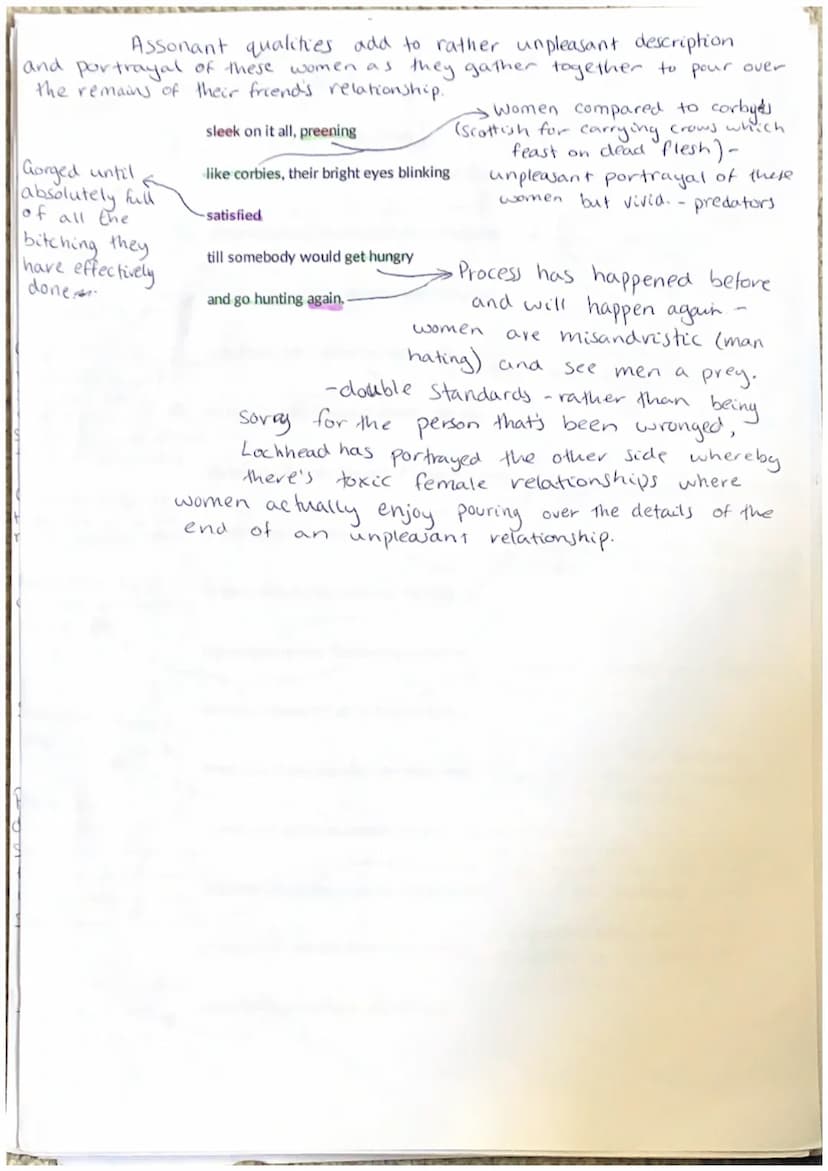 Assonant qualities add to rather unpleasant description
and portrayal of these women as they gather together to pour over
the remains of their friend's relationship.
sleek on it all, preening
like corbies, their bright eyes blinking
satisfied
till somebody would get hungry
and go hunting again.
Women compared to
(Scottish for carrying crows which
feast on dead flesh) -
unpleasant portrayal of these
women but vivid. - predators
Gorged until
absolutely full
of all the
bitching they
have effectively
done
Process has happened before
and will happen again -
women are misandristic (man
hating) and see men a prey.
- double standards - rather than being
sorry for the person that's been wronged,
Lochhead has portrayed the other side whereby
there's toxic female relationships where
women actually enjoy pouring over the details of the
end of an unpleasant relationship.